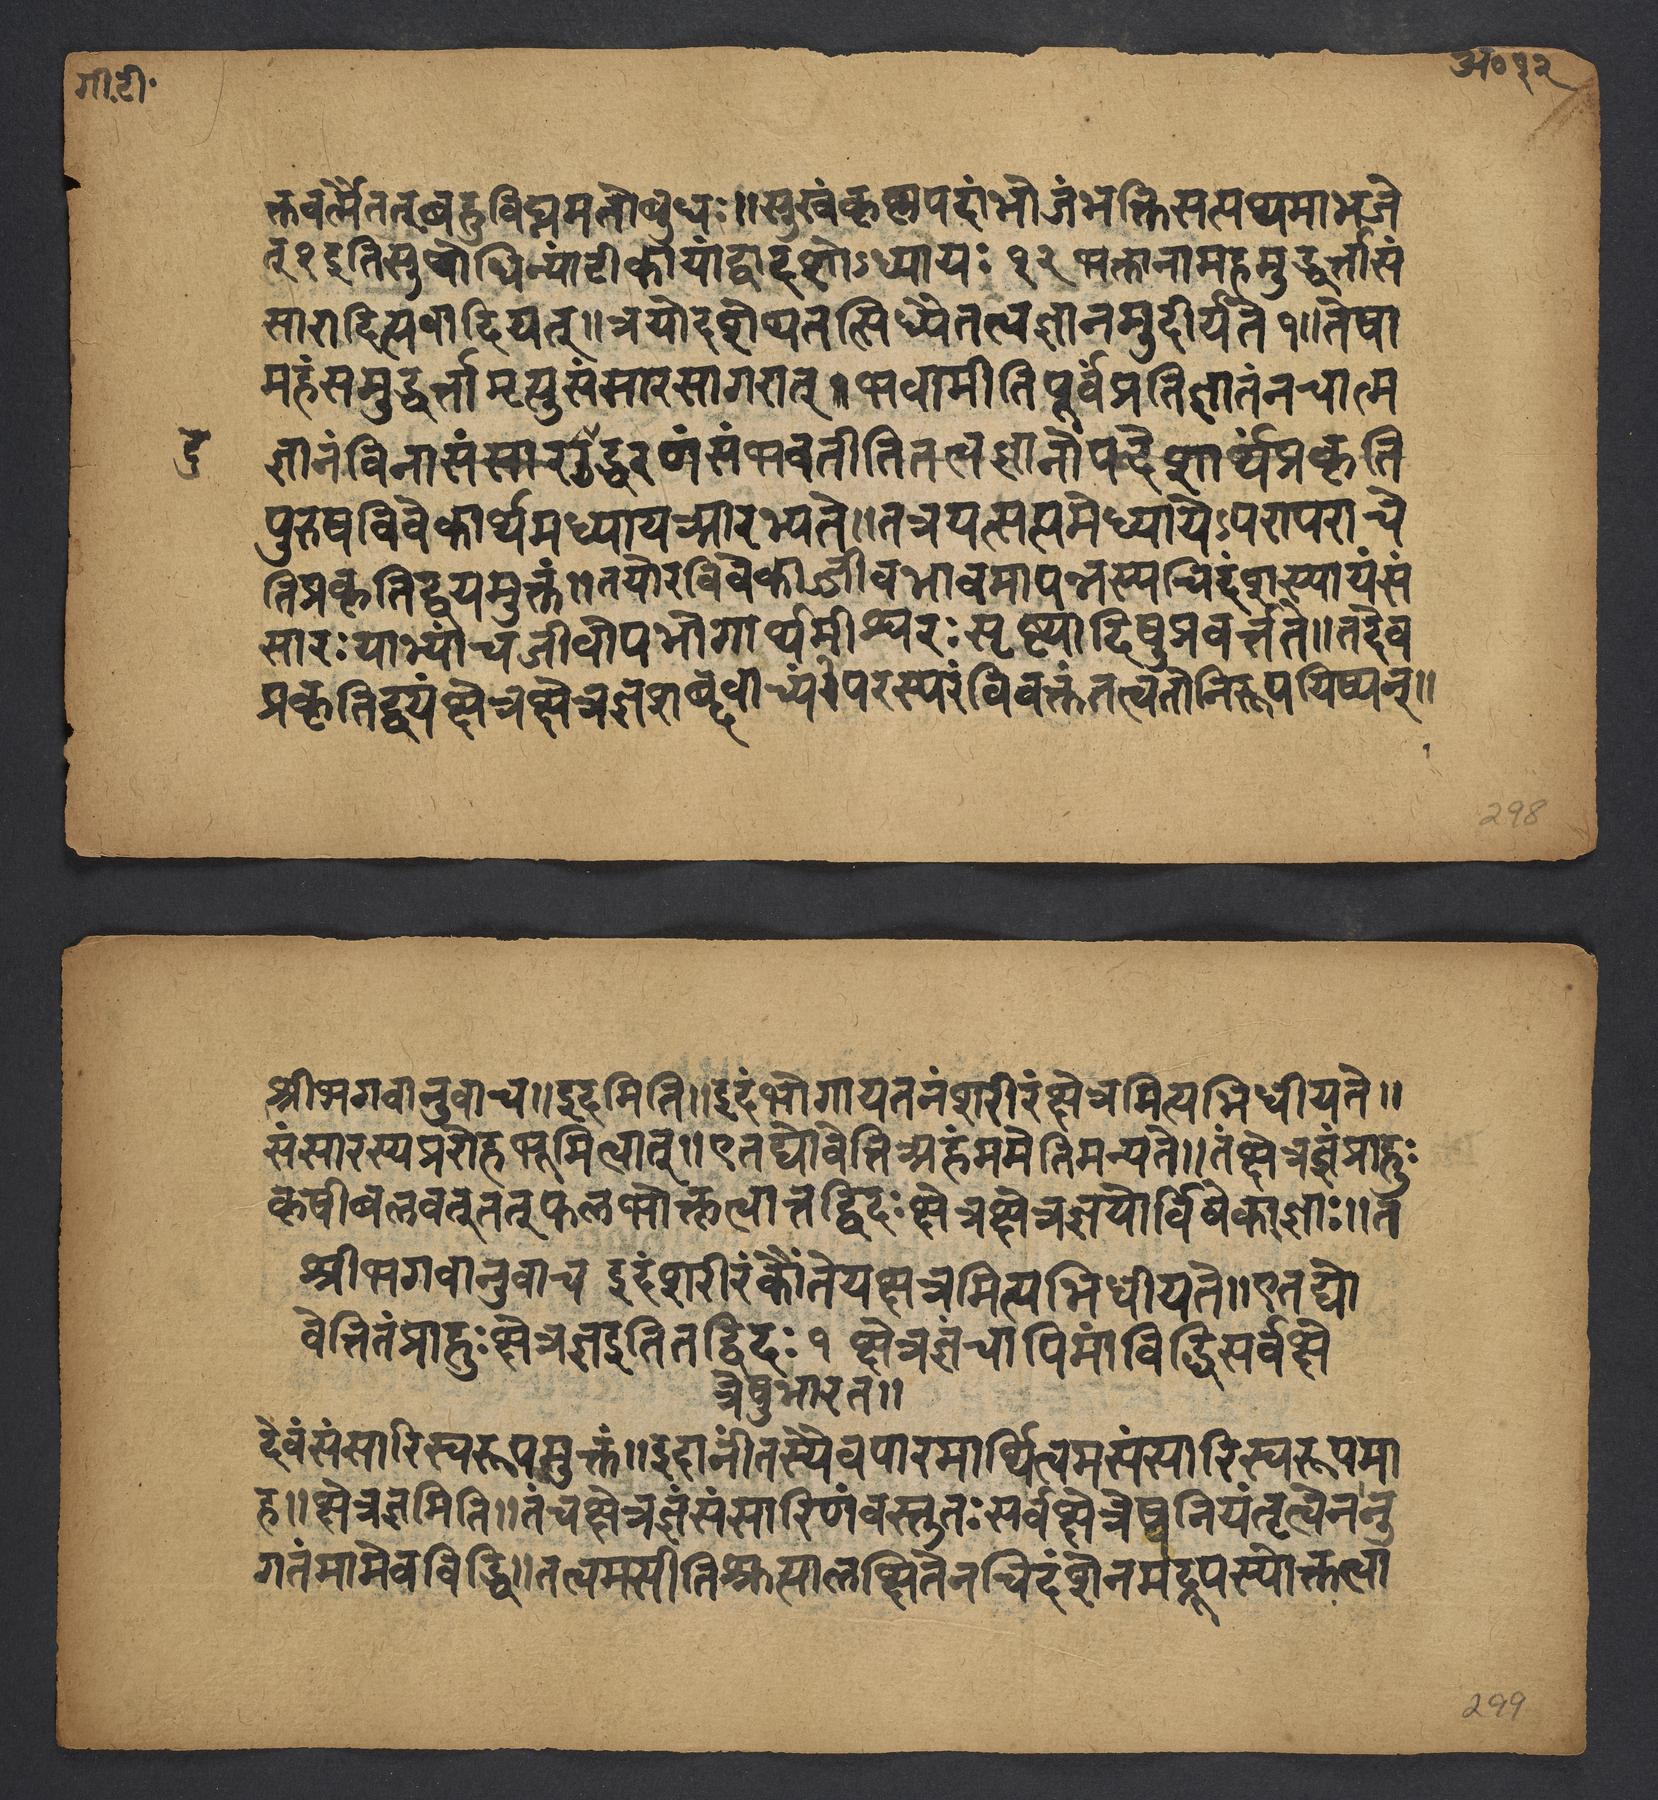 गी.टी.
अ० १२
क्तवर्त्मैतत्बहुविघ्नमतोबुधः॥सुखंकृष्णपदांभोजंभक्तिसत्पथमाभजे
त्१इतिसुबोधिन्यांटीकायांद्वादशोऽध्यायः १२ भक्तानामहमुद्धर्त्तासं
सारादित्यवादियत्॥त्रयोदशेथतत्सिध्यैतत्वज्ञानमुदीर्यते१॥तेषा
महंसमुद्धर्त्तामृत्युसंसारसागरात्॥भवामीतिपूर्वंप्रतिज्ञातंनचात्म
ज्ञानंविनासंसारादुद्धरणंसंभवतीतितत्वज्ञानोपदेशार्थंप्रकृति
दु
पुरुषविवेकार्थमध्यायआरभ्यते॥तत्रयत्सप्तमेध्यायेऽपरापराचे
तिप्रकृतिद्वयमुक्तं॥तयोरविवेकाज्जीवभावमापन्नस्यचिदंशस्यायंसं
सारःयाभ्यांचजीवोपभोगार्थमीश्वरःसृष्ट्यादिषुप्रवर्त्तते॥तदेव
प्रकृतिद्वयंक्षेत्रक्षेत्रज्ञशब्दवाच्यंपरस्परंविवक्तंतत्वतोनिरूपयिष्यन्॥
298
श्रीभगवानुवाच॥इदमिति॥इदंभोगायतनंशरीरंक्षेत्रमित्यभिधीयते॥
संसारस्यप्ररोहभूमित्वात्॥एतद्योवेत्तिअहंममेतिमन्यते॥तंक्षेत्रज्ञंप्राहुः
कृषीबलवत्तत्फलभोक्तृत्वात्तद्विदःक्षेत्रक्षेत्रज्ञयोर्विवेकाज्ञाः॥त
श्रीभगवानुवाच इदंशरीरंकौंतेयक्षेत्रमित्यभिधीयते॥एतद्यो
वेत्तितंप्राहुःक्षेत्रज्ञइतितद्विदः १ क्षेत्रज्ञंचापिमांविद्धिसर्वक्षे
त्रेषुभारत॥
देवंसंसारिस्वरूपमुक्तं॥इदानींतस्यैवपारमार्थित्वमसंसारिस्वरूपमा
ह॥क्षेत्रज्ञमिति॥तंचक्षेत्रज्ञंसंसारिणंवस्तुतःसर्वक्षेत्रेषुनियंतृत्वेननु
गतंमामेवविद्धि॥तत्वमसीतिश्रुत्यालक्षितेनचिदंशेनमद्रूपस्योक्तत्वा
299